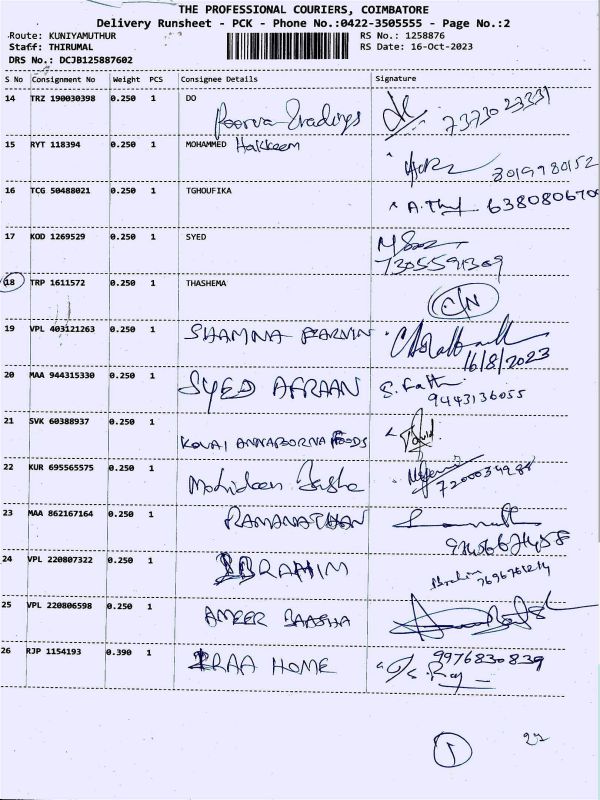 THE PROFESSIONAL COURIERS, COIMBATORE
Delivery Runsheet - PCK - Phone No.:0422-3505555 - Page No.:2
Route: KUNIYAMUTHUR RS No.: 1258876
Staff: THIRUMAL RS Date: 16-Oct-2023
DRS No.: DCJB125887602
S No Consignment No Weight PCS Consignee Details Signature
14 TRZ 190030398 0.250 1 DO
Poorva Tradings 7373023331
15 RYT 118394 0.250 1 MOHAMMED Hakkeem
8019780152
16 TCG 50488021 0.250 1 TGHOUFIKA
6380806700
17 KOD 1269529 0.250 1 SYED
7305591309
18 TRP 1611572 0.250 1 THASHEMA
C/N
19 VPL 403121263 0.250 1 SHAMNA PARVIN
16/8/2023
20 MAA 944315330 0.250 1 SYED AFRAAN
9443136055
21 SVK 60388937 0.250 1
KOVAI ANNAPOORNA FOODS
22 KUR 695565575 0.250 1 Mohideen
23 MAA 862167164 0.250 1 RAMANATHAN
24 VPL 220807322 0.250 1 IBRAHIM
25 VPL 220806598 0.250 1 AMEER BAASHA
26 RJP 1154193 0.390 1 IRAA HOME 9976830839
1